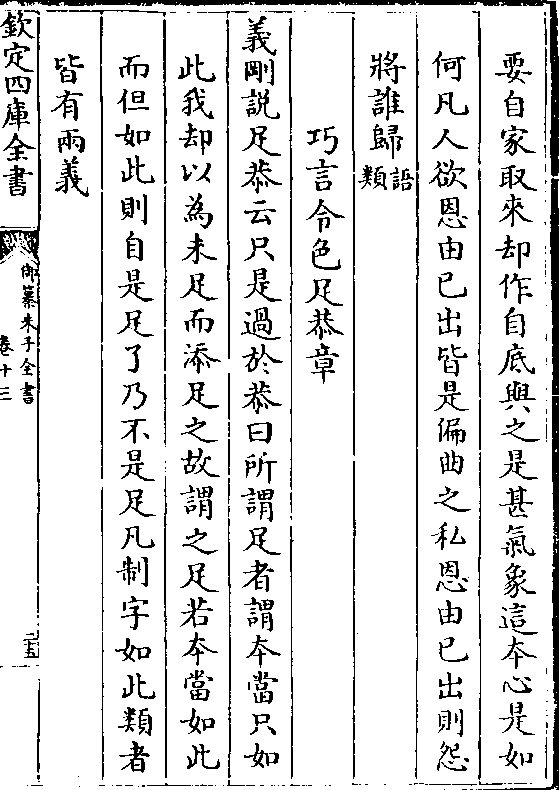 要自家取來却作自底與之是甚氣象這本心是如
何凡人欲恩由已出皆是偏曲之私恩由已出則怨
將誰歸語類
巧言令色足恭章
義剛説足恭云只是過於恭曰所謂足者謂本當只如
此我却以為未足而添足之故謂之足若本當如此
而但如此則自是足了乃不是足凡制字如此類者
皆有兩義
欽定四庫全書
御纂朱子全書
卷十三
二五